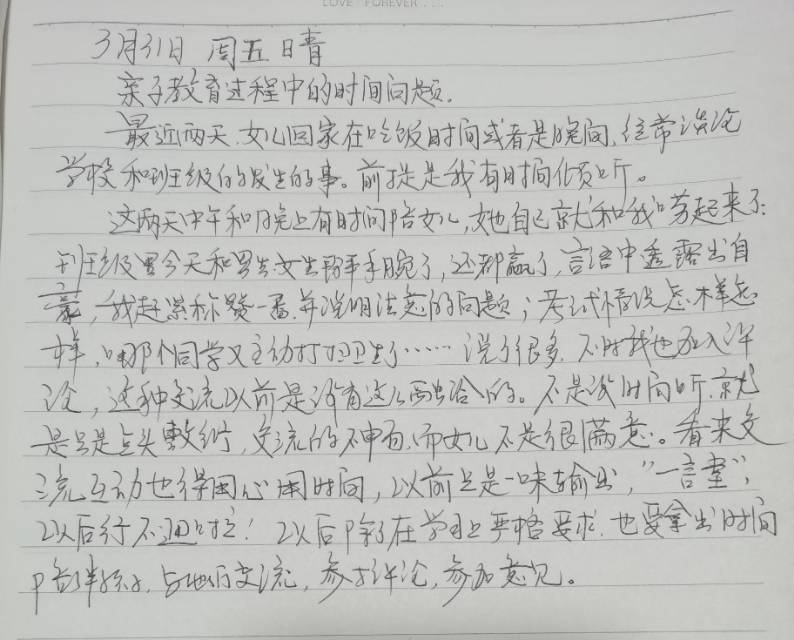 LOVE FOREVER...
3月31日 周五 日青
亲子教育过程中的时间问题.
最近两天,女儿回家在吃饭时间或者是晚间,经常谈论
学校和班级的发生的事。前提是我有时间倾听。
这两天中午和晚上有时间陪女儿,她自己就和我唠起来了:
到班级里今天和男生女生掰手腕了,还都赢了,言语中透露出自
豪,我赶紧称赞一番,并说明注意的问题;考试情况怎么样怎
样,哪个同学又主动打扫卫生了……说了很多,不时我也加入评
论,这种交流以前是没有这么融洽的。不是没时间听,就
是只是点头敷衍,交流的不申有,而女儿不是很满意。看来交
流互动也得用心用时间,以前只是一味输出,"一言堂",
以后行不通了! 以后除了在学习上严格要求,也要拿出时间
陪伴孩子,与她们交流,参与评论,参加意见。